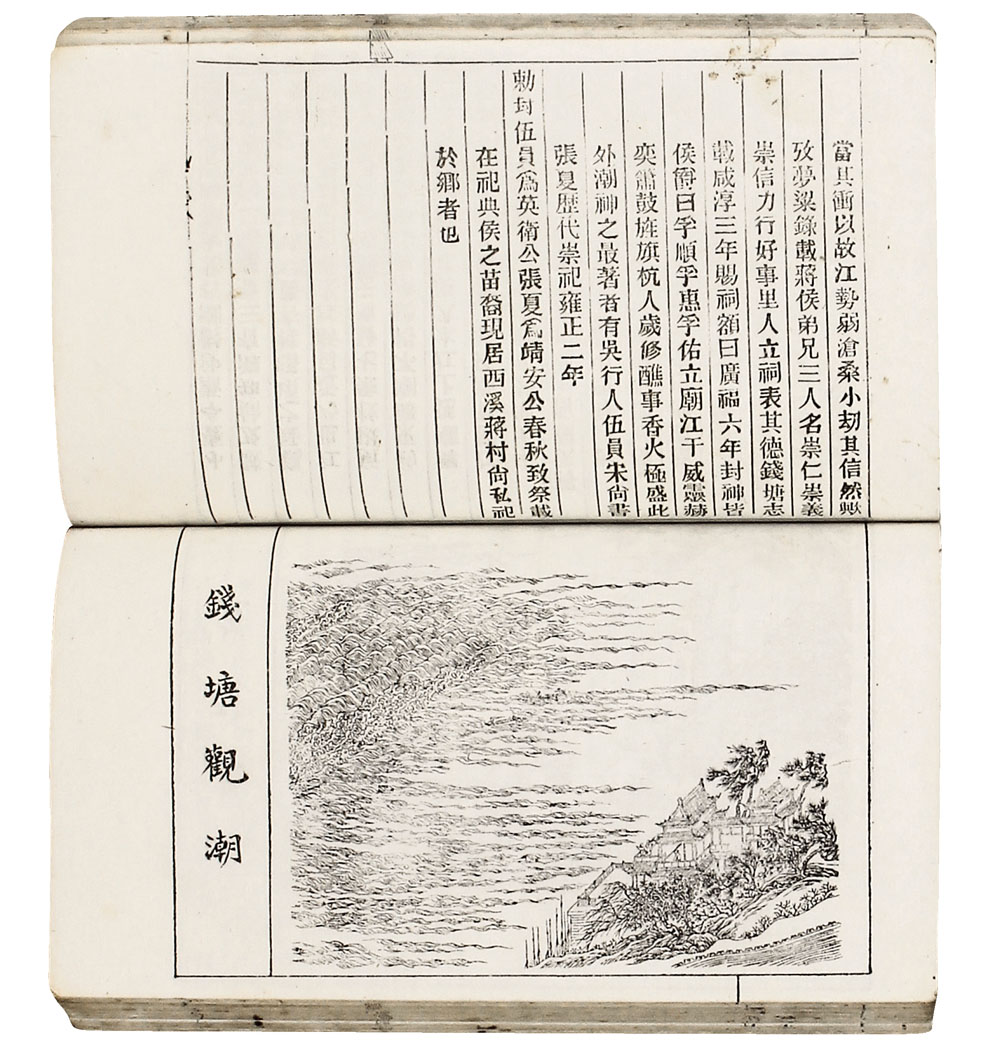 當其衝以故江勢弱滄桑小刼其信然歟
攷夢粱錄載蔣侯弟兄三人名崇仁崇義
崇信力行好事里人立祠表其德錢塘志
載咸淳三年賜祠額曰廣福六年封神皆
侯爵曰孚順孚惠孚佑立廟江干威靈赫
奕簫鼓旌旗杭人歲修醮事香火極盛此
外潮神之最著者有吳行人伍員宋尙書
張夏歷代崇祀雍正二年
勅封伍員爲英衛公張夏爲靖安公春秋致祭載
在祀典侯之苗裔現居西溪蔣村尙私祀
於鄉者也
錢塘觀潮